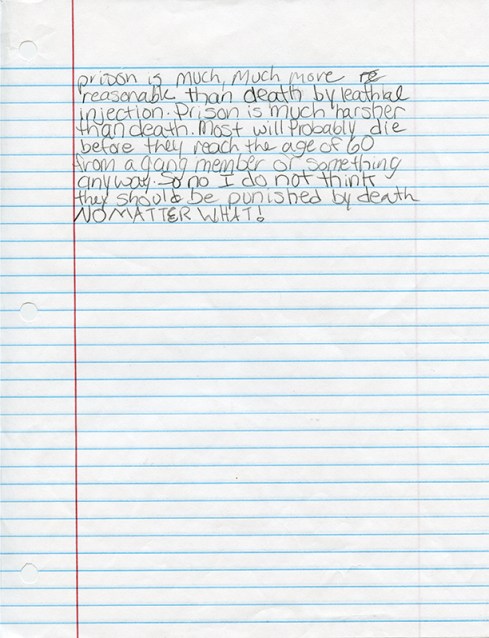 prison is much, Much more re
reasonable than death by leathial
injection. Prison is much harsher
than death. Most will Probably die
before they reach the age of 60
from a gang member or something
anyway. So no I do not think
they should be punished by death
NO MATTER WHAT!